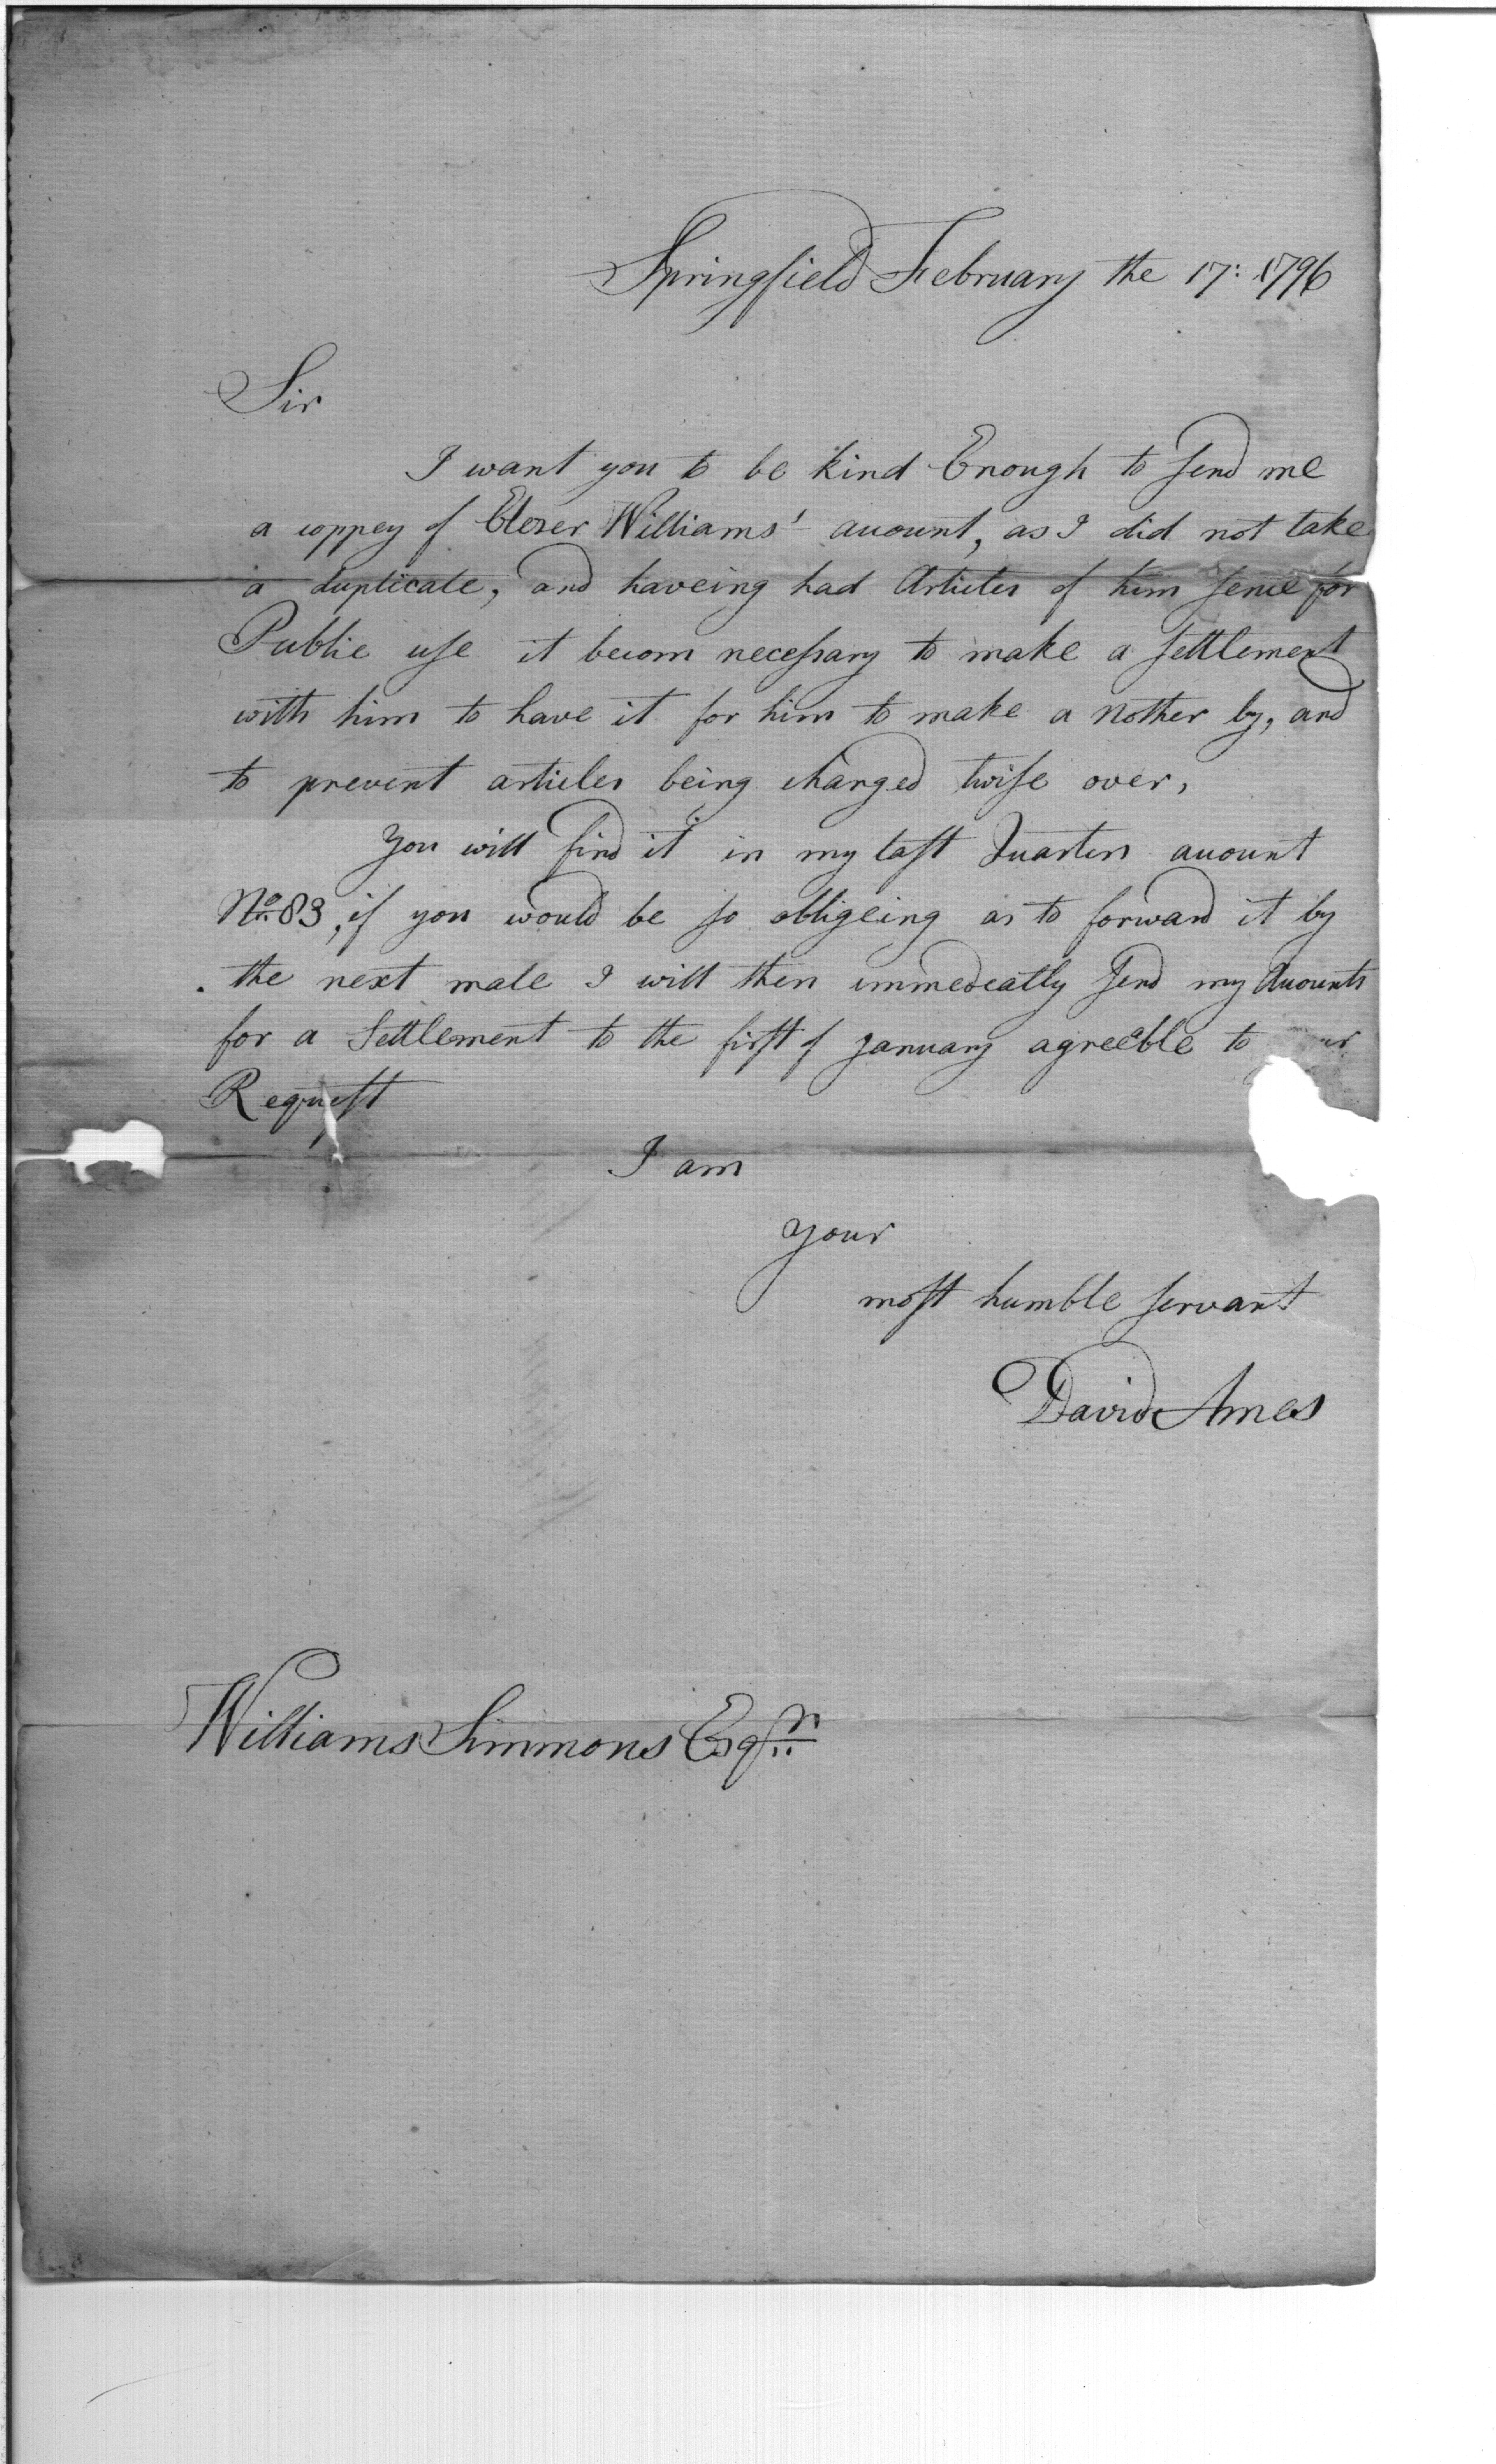 Springfield February the 17: 1796
Sir
I want you to be kind Enough to send me
a coppey of Elezer Williams' account, as I did not take
a duplicate, and haveing had Articles of him sence for
Public use it becom necessary to make a settlement
with him to have it for him to make a nother by, and
to prevent articles being charged twise over,
You will find it in my last Quarters account
No. 83, if you would be so obligeing as to forward it by
the next male I will then immedeatly send my Accounts
for a Settlement to the first of January agreeable to
Request
I am
your
most humble servant
David Ames
Williams Simmons Esqr.